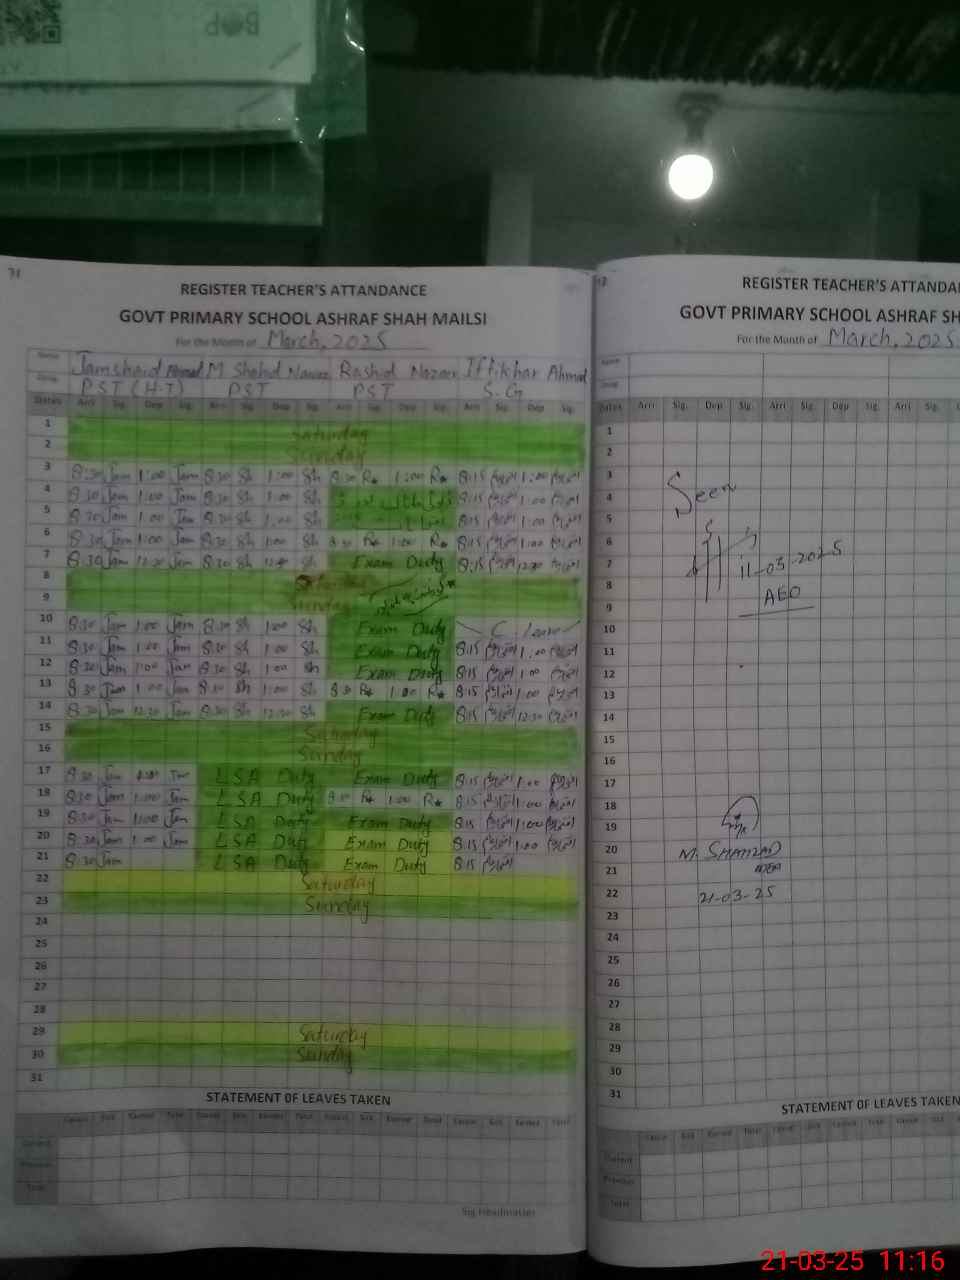 REGISTER TEACHER'S ATTANDANCE
GOVT PRIMARY SCHOOL ASHRAF SHAH MAILSI
For the Month of March, 2025
Name Jamshaid Ahmad M Shahid Nawaz Rashid Nazar Iftikhar Ahmad
PST (H-T) PST PST S.G
Dates Arri Sig. Dep Sig. Arri Sig. Dep Sig. Arri Sig. Dep Sig. Arri Sig. Dep Sig.
1 Saturday
2 Sunday
3 8:30 Jam 1:00 Jam 8:30 Sh 1:00 Sh 8:30 R 1:00 R 8:15 1:00
4 8:30 Jam 1:00 Jam 8:30 Sh 1:00 Sh 8:15 1:00
5 8:30 Jam 1:00 Jam 8:30 Sh 1:00 Sh 8:15 1:00
6 8:30 Jam 1:00 Jam 8:30 Sh 1:00 Sh 8:30 R 1:00 R 8:15 1:00
7 8:30 Jam 12:30 Jam 8:30 Sh 12:30 Sh Exam Duty 8:15 12:30
8 Saturday
9 Sunday
10 8:30 Jam 1:00 Jam 8:30 Sh 1:00 Sh Exam Duty C. Leave
11 8:30 Jam 1:00 Jam 8:30 Sh 1:00 Sh Exam Duty 8:15 1:00
12 8:30 Jam 1:00 Jam 8:30 Sh 1:00 Sh Exam Duty 8:15 1:00
13 8:30 Jam 1:00 Jam 8:30 Sh 1:00 Sh 8:30 R 1:00 R 8:15 1:00
14 8:30 Jam 12:30 Jam 8:30 Sh 12:30 Sh Exam Duty 8:15 12:30
15 Saturday
16 Sunday
17 8:30 Jam 1:00 Jam LSA Duty Exam Duty 8:15 1:00
18 8:30 Jam 1:00 Jam LSA Duty 8:30 R 1:00 R 8:15 1:00
19 8:30 Jam 1:00 Jam LSA Duty Exam Duty 8:15 1:00
20 8:30 Jam 1:00 Jam LSA Duty Exam Duty 8:15 1:00
21 8:30 Jam LSA Duty Exam Duty 8:15
22 Saturday
23 Sunday
24
25
26
27
28
29 Saturday
30 Sunday
31
STATEMENT OF LEAVES TAKEN
Casual Sick Earned Total Casual Sick Earned Total Casual Sick Earned Total Casual Sick Earned Total
Current
Previous
Total
Sig Headmaster
REGISTER TEACHER'S ATTANDA
GOVT PRIMARY SCHOOL ASHRAF SH
For the Month of March, 2025
Name
Dates Arri Sig. Dep Sig. Arri Sig. Dep Sig. Arri Sig.
1
2
3
4 Seen
5
6
7 11-03-2025
8 AEO
9
10
11
12
13
14
15
16
17
18
19
20 M. SHAHZAD
21
22 21-03-25
23
24
25
26
27
28
29
30
31
STATEMENT OF LEAVES TAKEN
Casual Sick Earned Total Casual Sick Earned Total Casual Sick Earned
Current
Previous
Total
21-03-25 11:16